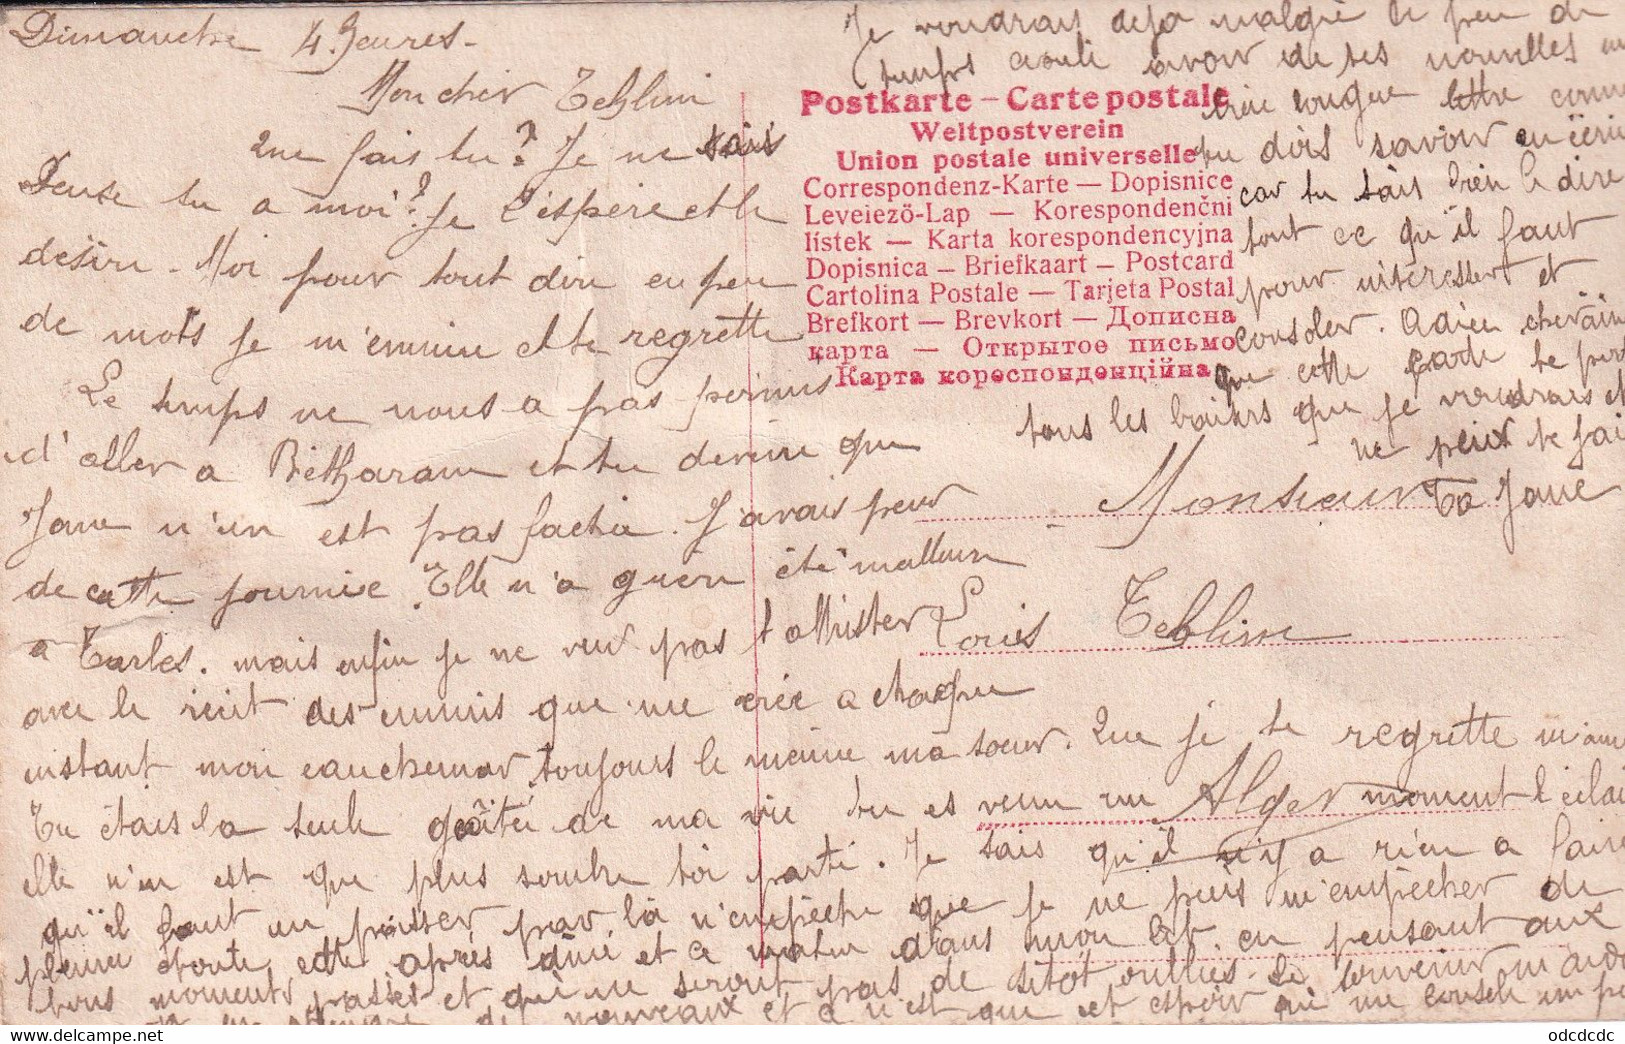 Dimanche 4 heures.
Mon cher Teblim
Que fais tu? Je ne sais
Pense tu a moi? Je l'espère et le
désire. Moi pour tout dire en peu
de mots je m'ennuie et te regrette
Le temps ne nous a pas permis
d'aller a Bétharam et tu devine que
Jane n'en est pas fachée. J'avais peur
de cette journée. Elle n'a guère été meilleure
a Tarbes. mais enfin je ne veux pas t'attrister
avec le récit des ennuis que me crée a chaque
instant mon cauchemar, toujours le même ma soeur. Que je te regrette m'ami
Tu étais la seule gaîté de ma vie tu es venu un moment l'éclai
elle n'en est que plus sombre toi parti. Je sais qu'il n'y a rien a faire
qu'il faut en passer par là n'empêche que je ne puis m'empêcher de
pleurer toute cette après dîné et ce matin dans mon lit. en pensant aux
bons moments passés et qui ne seront pas de sitôt oubliés. Le souvenir m'aide
de nouveaux et ce n'est que cet espoir qui me console un pe
Je voudrais déja malgré le peu de
temps avoir de tes nouvelles
longue lettre comme
tu dois savoir en écrire
car tu sais bien le dire
tout ce qu'il faut
pour intéresser et
consoler. Adieu cheràim
que cette carte te porte
tous les baisers que je voudrais et
ne peux te fai
Ta Jane
Postkarte – Carte postale
Weltpostverein
Union postale universelle
Correspondenz-Karte — Dopisnice
Levelező-Lap — Korespondenční
lístek — Karta korespondencyjna
Dopisnica — Briefkaart — Postcard
Cartolina Postale — Tarjeta Postal
Brefkort — Brevkort — Дописна
карта — Открытое письмо
Карта кореспонденційна
Monsieur
Louis Teblim
Alger
odcdcdc